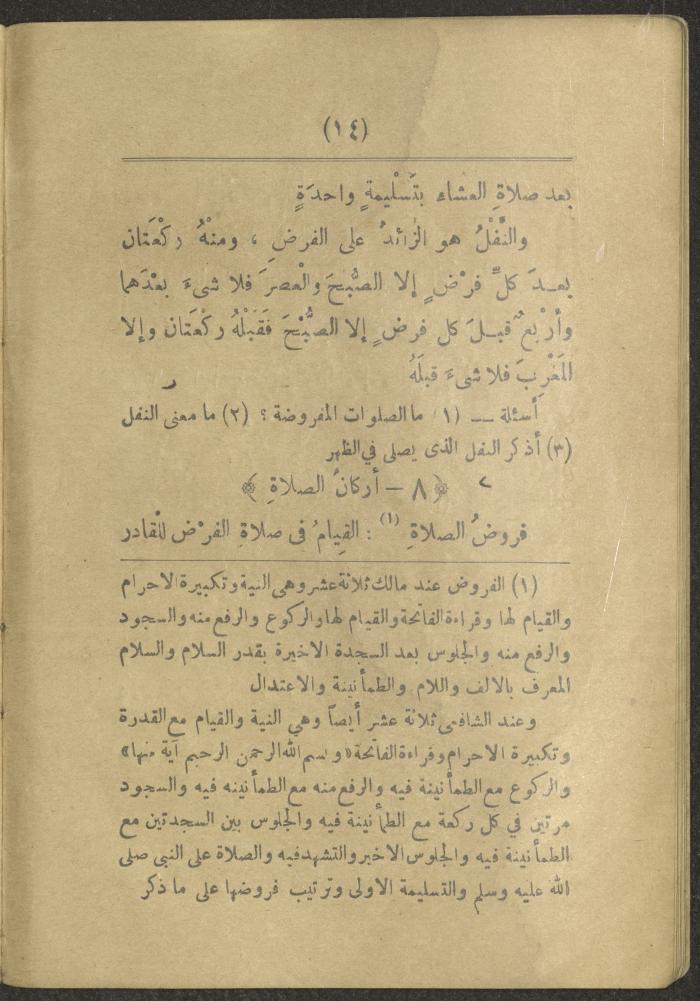 (١٤)
بعد صلاةِ العشاء بتَسْلِيمةٍ واحدَةٍ
والنَّفْلُ هو الزَّائدُ على الفرضِ ، ومنْهُ رَكْعَتان
بعـدَ كلِّ فرْضٍ إلا الصُّبحَ والْعصرَ فلا شىءَ بعْدَهما
وأرْبعٌ قبـلَ كل فرضٍ إلا الصُّبْحَ فقَبْلَهُ ركْعَتان وإلا
المَغْرِبَ فلا شىءَ قبلَهُ
أسئلة — (١) ما الصلوات المفروضة ؟ (٢) ما معنى النفل
(٣) أذكر النفل الذى يصلى فى الظهر
﴿ ٨ – أركانُ الصلاةِ ﴾
فروضُ الصلاةِ (١) : القِيامُ فى صلاةِ الفرْض للْقادر
(١) الفروض عند مالك ثلاثة عشر وهى النية وتكبيرة الاحرام
والقيام لها وقراءة الفاتحة والقيام لها والركوع والرفع منه والسجود
والرفع منه والجلوس بعد السجدة الاخيرة بقدر السلام والسلام
المعرف بالالف واللام والطمأنينة والاعتدال
وعند الشافعى ثلاثة عشر أيضاً وهي النية والقيام مع القدرة
وتكبيرة الاحرام وقراءة الفاتحة «وبسم الله الرحمن الرحيم آية منها»
والركوع مع الطمأنينة فيه والرفع منه مع الطمأنينه فيه والسجود
مرتين في كل ركعة مع الطمأنينة فيه والجلوس بين السجدتين مع
الطمأنينة فيه والجلوس الاخير والتشهد فيه والصلاة على النبى صلى
الله عليه وسلم والتسليمة الاولى وترتيب فروضها على ما ذكر